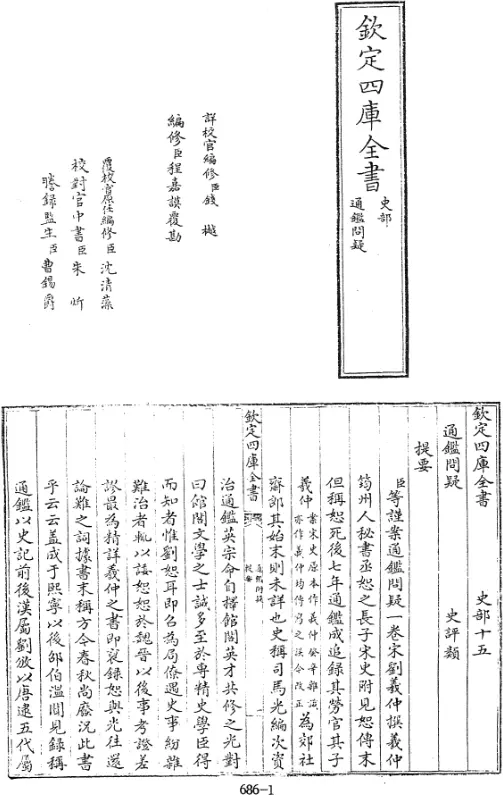 欽定四庫全書
史部
通鑑問疑
詳校官編修臣錢樾
編修臣程嘉謨覆勘
覆校官原任編修臣沈清藻
校對官中書臣朱炘
謄錄監生臣曹錫爵
欽定四庫全書
史部十五
通鑑問疑
史評類
提要
臣等謹案通鑑問疑一卷宋劉羲仲撰羲仲
筠州人秘書丞恕之長子宋史附見恕傳末
但稱恕死後七年通鑑成追錄其勞官其子
羲仲
案宋史原本作義仲癸辛雜識
亦作義仲均傳寫之誤今改正
為郊社
齋郎其始末則未詳也史稱司馬光編次資
欽定四庫全書
通鑑問疑
提要
治通鑑英宗命自擇館閣英才共修之光對
曰館閣文學之士誠多至於專精史學臣得
而知者惟劉恕耳即召為局僚遇史事紛雜
難治者輒以諉恕恕於魏晉以後事考證差
謬最為精詳羲仲之書即裒錄恕與光往還
論難之詞據書末稱方今春秋尚廢況此書
乎云云蓋成于熙寧以後邵伯溫聞見錄稱
通鑑以史記前後漢屬劉攽以唐逮五代屬
686-1